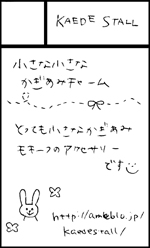 KAEDE STALL
小さな小さな
かぎあみチャーム
とっても小さなかぎあみ
モチーフのアクセサリー
です
http://ameblo.jp/
kaedestall/